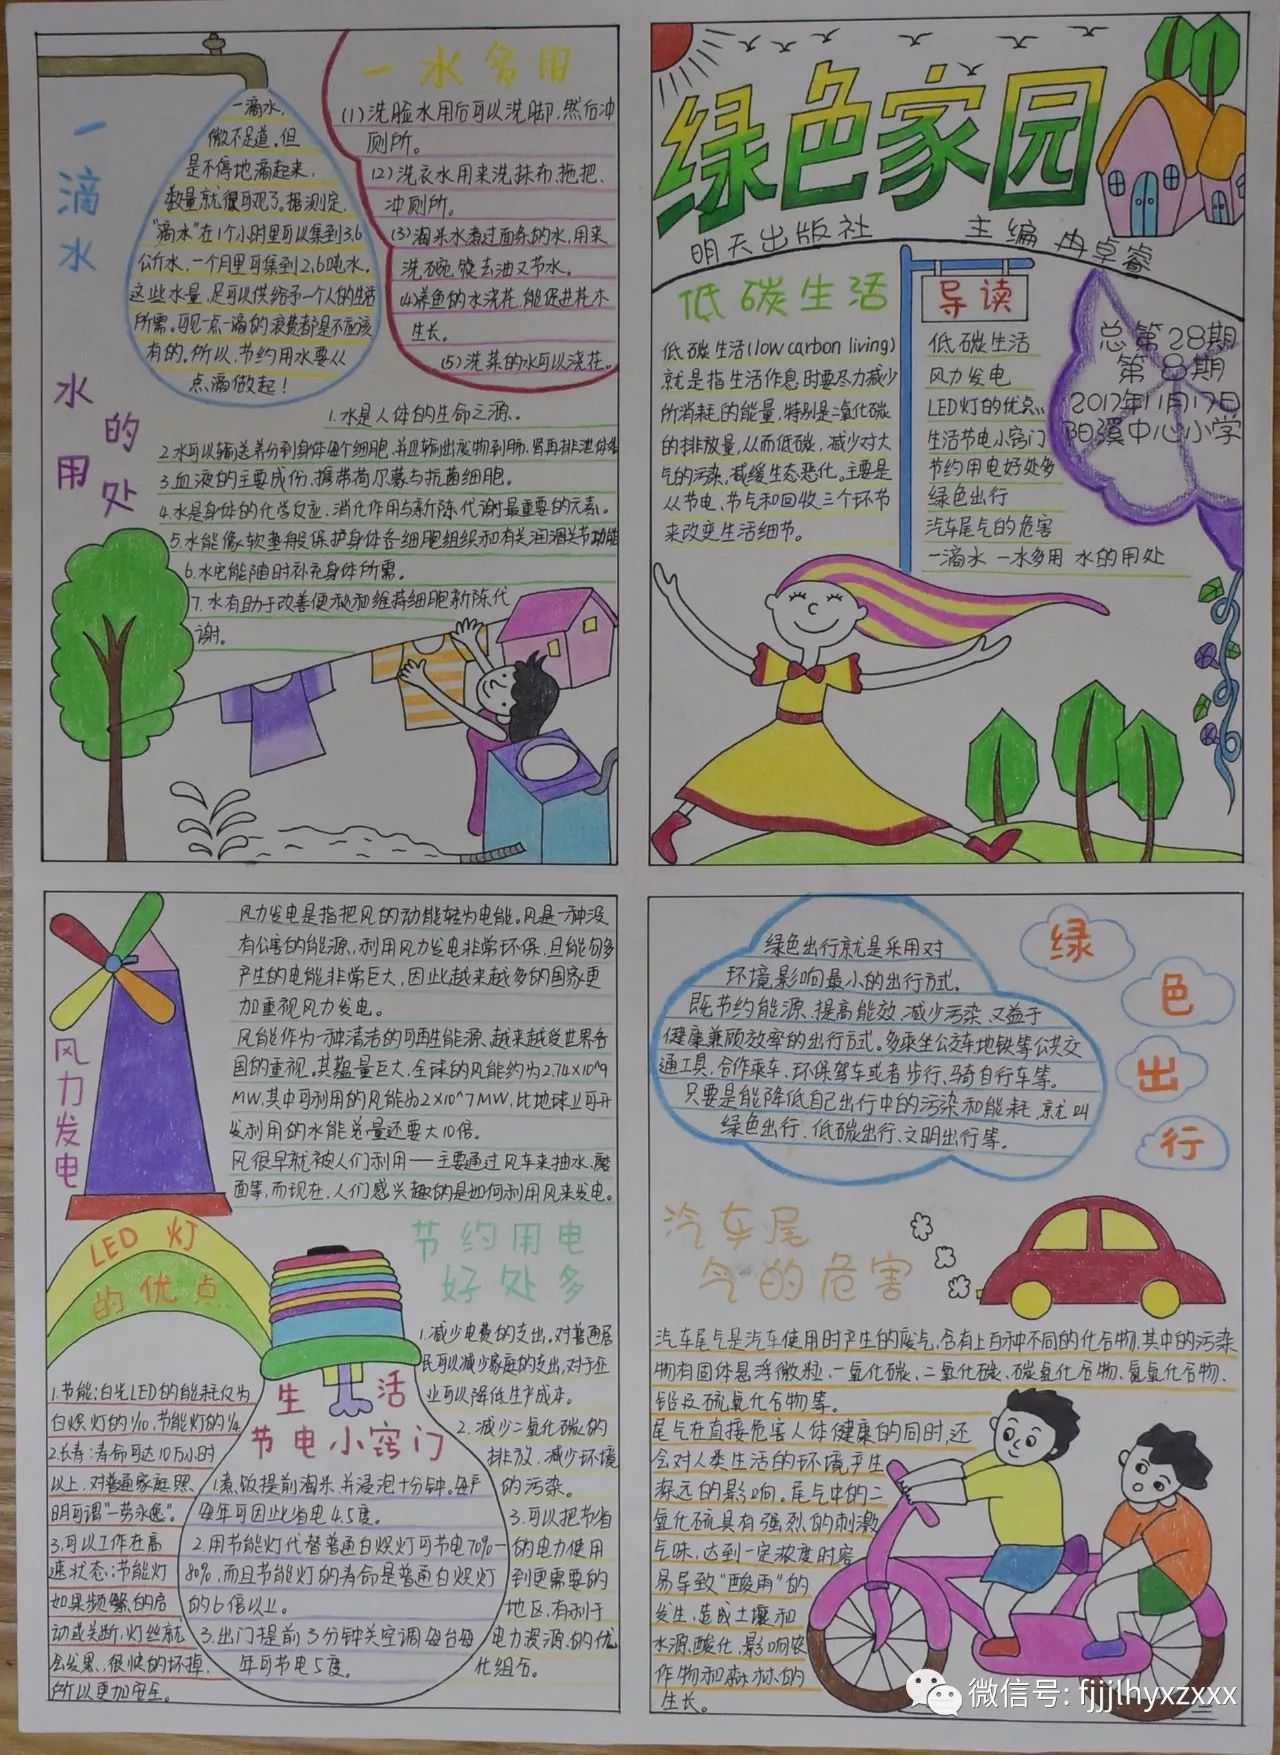 一滴水
一滴水，
微不足道。但
是不停地滴起来，
数量就很可观了。据测定，
"滴水"在1个小时里可以集到3.6
公斤水，一个月里可集到2.6吨水。
这些水量，足可以供给予一个人的生活
所需。可见一点一滴的浪费都是不应该
有的。所以，节约用水要从
点滴做起！
一水多用
(1)洗脸水用后可以洗脚，然后冲
厕所。
(2)洗衣水用来洗抹布、拖把、
冲厕所。
(3)淘米水煮过面条的水，用来
洗碗筷去油又节水。
(4)养鱼的水浇花，能促进花木
生长。
(5)洗菜的水可以浇花。
水的用处
1.水是人体的生命之源。
2.水可以输送养分到身体每个细胞，并且输出废物到肺、胃再排泄体
3.血液的主要成份，携带荷尔蒙与抗菌细胞。
4.水是身体的化学反应、消化作用与新陈代谢最重要的元素。
5.水能像软垫般保护身体各细胞组织和有关润滑关节功能
6.水它能随时补充身体所需。
7.水有助于改善便秘和维持细胞新陈代
谢。
绿色家园
明天出版社 主编 冉卓睿
低碳生活
低碳生活(low carbon living)
就是指生活作息时要尽力减少
所消耗的能量，特别是二氧化碳
的排放量，从而低碳，减少对大
气的污染，减缓生态恶化。主要是
从节电、节气和回收三个环节
来改变生活细节。
导读
低碳生活
风力发电
LED灯的优点
生活节电小窍门
节约用电好处多
绿色出行
汽车尾气的危害
一滴水 一水多用 水的用处
总第28期
第8期
2017年11月17日
阳溪中心小学
风力发电
风力发电是指把风的动能转为电能。风是一种没
有公害的能源，利用风力发电非常环保，且能够多
产生的电能非常巨大，因此越来越多的国家更
加重视风力发电。
风能作为一种清洁的可再生能源，越来越受世界各
国的重视。其蕴量巨大，全球的风能约为2.74×10^9
MW，其中可利用的风能为2×10^7MW，比地球上可开
发利用的水能总量还要大10倍。
风很早就被人们利用——主要通过风车来抽水、磨
面等，而现在，人们感兴趣的是如何利用风来发电。
LED灯
的优点
1.节能：白光LED的能耗仅为
白炽灯的1/10，节能灯的1/4
2.长寿：寿命可达10万小时
以上，对普通家庭照
明可谓"一劳永逸"。
3.可以工作在高
速状态：节能灯
如果频繁的启
动或关断，灯丝就
会发黑，很快的坏掉，
所以更加安全。
生活
节电小窍门
1.煮饭提前淘米，并浸泡十分钟。每户
每年可因此省电4.5度。
2.用节能灯代替普通白炽灯可节电70%—
80%，而且节能灯的寿命是普通白炽灯
的6倍以上。
3.出门提前3分钟关空调，每台每
年可节电5度。
节约用电
好处多
1.减少电费的支出。对普通居
民可以减少家庭的支出，对于企
业可以降低生产成本。
2.减少二氧化碳的
排放，减少环境
的污染。
3.可以把节省
的电力使用
到更需要的
地区，有利于
电力资源的优
化组合。
绿色出行
绿色出行就是采用对
环境影响最小的出行方式。
既节约能源、提高能效、减少污染、又益于
健康兼顾效率的出行方式。多乘坐公交车地铁等公共交
通工具，合作乘车，环保驾车或者步行、骑自行车等。
只要是能降低自己出行中的污染和能耗，就叫
绿色出行、低碳出行、文明出行等。
汽车尾
气的危害
汽车尾气是汽车使用时产生的废气，含有上百种不同的化合物，其中的污染
物有固体悬浮微粒、一氧化碳、二氧化碳、碳氢化合物、氮氧化合物、
铅及硫氧化合物等。
尾气在直接危害人体健康的同时，还
会对人类生活的环境产生
深远的影响。尾气中的二
氧化硫具有强烈的刺激
气味，达到一定浓度时容
易导致"酸雨"的
发生，造成土壤和
水源酸化，影响农
作物和森林的
生长。
微信号: fjjjlhyxzxxx